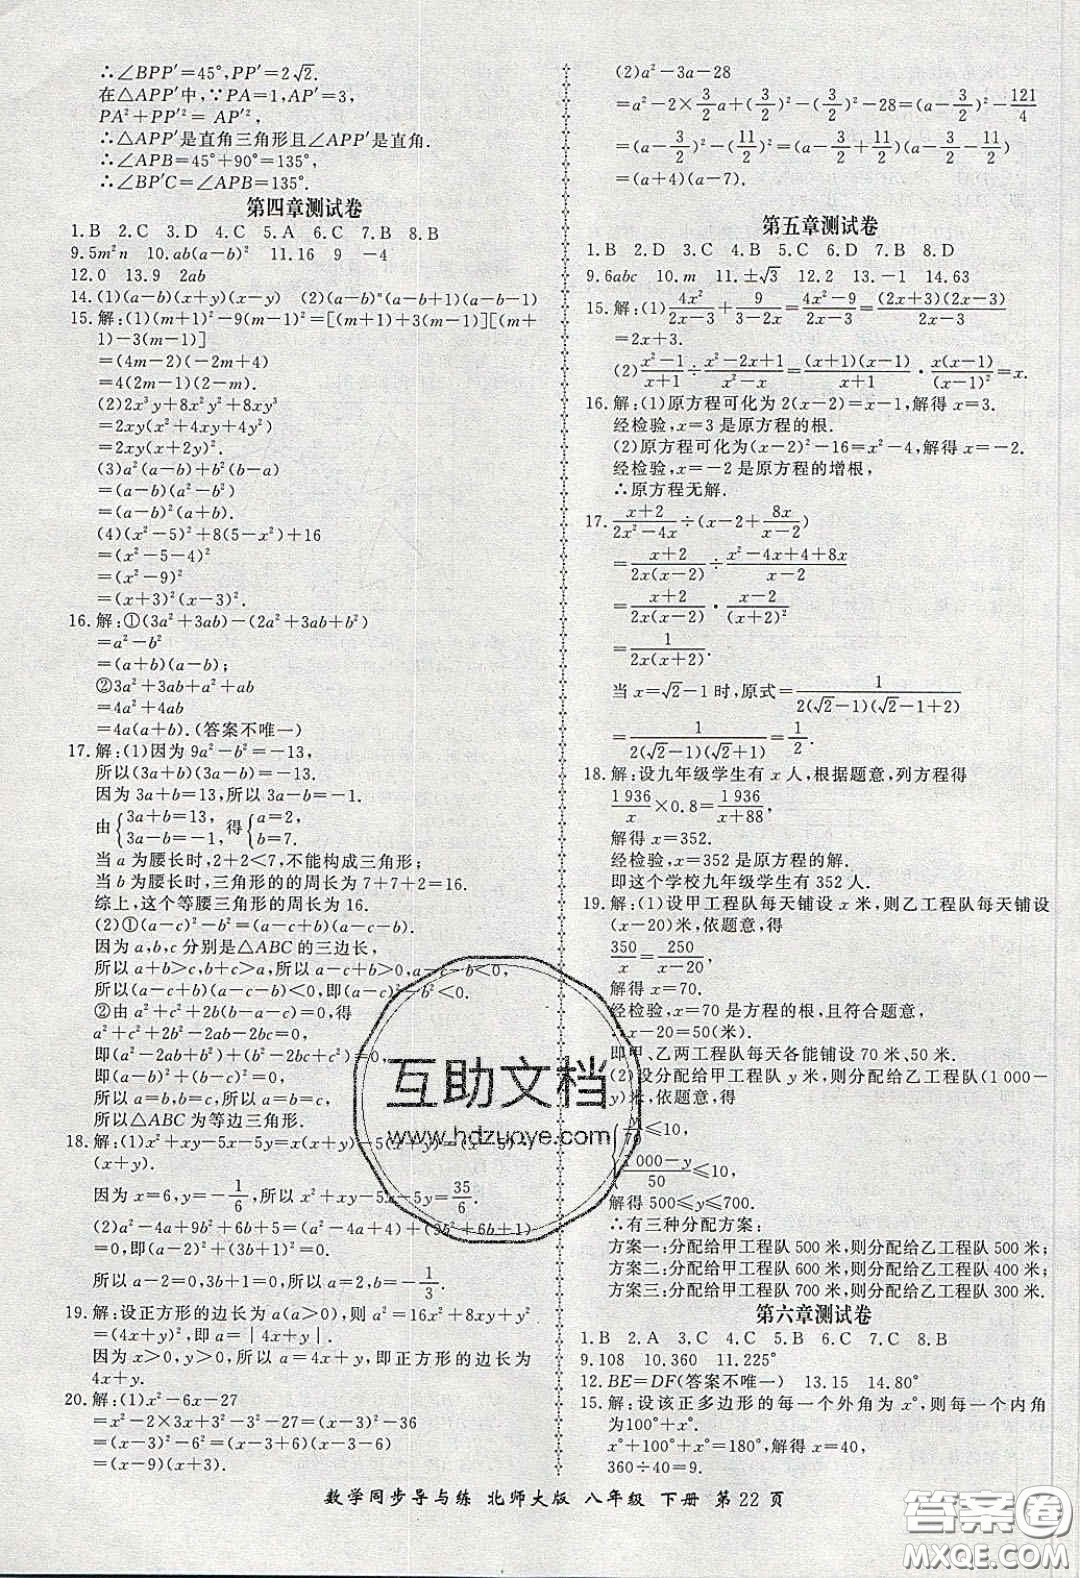 ∴∠BPP′=45°,PP′=2√2.
在△APP′中,∵PA=1,AP′=3,
PA²+PP′²=AP′²,
∴△APP′是直角三角形且∠APP′是直角.
∴∠APB=45°+90°=135°,
∴∠BP′C=∠APB=135°.
第四章测试卷
1.B 2.C 3.D 4.C 5.A 6.C 7.B 8.B
9.5m²n 10.ab(a−b)² 11.16 9 −4
12.0 13.9 2ab
14.(1)(a−b)(x+y)(x−y) (2)(a−b)ⁿ(a−b+1)(a−b−1)
15.解:(1)(m+1)²−9(m−1)²=[(m+1)+3(m−1)][(m+
1)−3(m−1)]
=(4m−2)(−2m+4)
=4(2m−1)(2−m).
(2)2x³y+8x²y²+8xy³
=2xy(x²+4xy+4y²)
=2xy(x+2y)².
(3)a²(a−b)+b²(b−a)
=(a−b)(a²−b²)
=(a−b)²(a+b).
(4)(x²−5)²+8(5−x²)+16
=(x²−5−4)²
=(x²−9)²
=(x+3)²(x−3)².
16.解:①(3a²+3ab)−(2a²+3ab+b²)
=a²−b²
=(a+b)(a−b);
②3a²+3ab+a²+ab
=4a²+4ab
=4a(a+b).(答案不唯一)
17.解:(1)因为 9a²−b²=−13,
所以(3a+b)(3a−b)=−13.
因为 3a+b=13,所以 3a−b=−1.
由{3a+b=13, 3a−b=−1, 得{a=2, b=7.
当 a 为腰长时,2+2<7,不能构成三角形;
当 b 为腰长时,三角形的的周长为 7+7+2=16.
综上,这个等腰三角形的周长为 16.
(2)①(a−c)²−b²=(a−c+b)(a−c−b).
因为 a,b,c 分别是△ABC 的三边长,
所以 a+b>c,b+c>a,所以 a−c+b>0,a−c−b<0,
所以(a−c+b)(a−c−b)<0,即(a−c)²−b²<0.
②由 a²+c²+2b(b−a−c)=0,得
a²+c²+2b²−2ab−2bc=0,
即(a²−2ab+b²)+(b²−2bc+c²)=0.
即(a−b)²+(b−c)²=0,
所以 a=b,b=c,所以 a=b=c.
所以△ABC 为等边三角形.
18.解:(1)x²+xy−5x−5y=x(x+y)−5(x+y)=(x−5)·
(x+y).
因为 x=6,y=−1/6,所以 x²+xy−5x−5y=35/6.
(2)a²−4a+9b²+6b+5=(a²−4a+4)+(9b²+6b+1)
=0,即(a−2)²+(3b+1)²=0,
所以 a−2=0,3b+1=0,所以 a=2,b=−1/3.
19.解:设正方形的边长为 a(a>0),则 a²=16x²+8xy+y²
=(4x+y)²,即 a=|4x+y|.
因为 x>0,y>0,所以 a=4x+y,即正方形的边长为
4x+y.
20.解:(1)x²−6x−27
=x²−2×3x+3²−3²−27=(x−3)²−36
=(x−3)²−6²=(x−3−6)(x−3+6)
=(x−9)(x+3).
(2)a²−3a−28
=a²−2×3/2a+(3/2)²−(3/2)²−28=(a−3/2)²−121/4
=(a−3/2)²−(11/2)²=(a−3/2+11/2)(a−3/2−11/2)
=(a+4)(a−7).
第五章测试卷
1.B 2.D 3.C 4.B 5.C 6.D 7.B 8.D
9.6abc 10.m 11.±√3 12.2 13.−1 14.63
15.解:(1)4x²/(2x−3)+9/(3−2x)=(4x²−9)/(2x−3)=(2x+3)(2x−3)/(2x−3)
=2x+3.
(2)(x²−1)/(x+1)÷(x²−2x+1)/(x²−x)=(x+1)(x−1)/(x+1)·x(x−1)/(x−1)²=x.
16.解:(1)原方程可化为 2(x−2)=x−1,解得 x=3.
经检验,x=3 是原方程的根.
(2)原方程可化为(x−2)²−16=x²−4,解得 x=−2.
经检验,x=−2 是原方程的增根,
∴原方程无解.
17.(x+2)/(2x²−4x)÷(x−2+8x/(x−2))
=(x+2)/(2x(x−2))÷(x²−4x+4+8x)/(x−2)
=(x+2)/(2x(x−2))·(x−2)/(x+2)²
=1/(2x(x+2)).
当 x=√2−1 时,原式=1/(2(√2−1)(√2−1+2))
=1/(2(√2−1)(√2+1))=1/2.
18.解:设九年级学生有 x 人,根据题意,列方程得
1936/x×0.8=1936/(x+88).
解得 x=352.
经检验,x=352 是原方程的解.
即这个学校九年级学生有 352 人.
19.解:(1)设甲工程队每天铺设 x 米,则乙工程队每天铺设
(x−20)米,依题意,得
350/x=250/(x−20).
解得 x=70.
经检验,x=70 是方程的根,且符合题意,
∴x−20=50(米).
即甲、乙两工程队每天各能铺设 70 米、50 米.
(2)设分配给甲工程队 y 米,则分配给乙工程队(1 000−
y)米,依题意,得
{y/70≤10,
(1 000−y)/50≤10,
解得 500≤y≤700.
∴有三种分配方案:
方案一:分配给甲工程队 500 米,则分配给乙工程队 500 米;
方案二:分配给甲工程队 600 米,则分配给乙工程队 400 米;
方案三:分配给甲工程队 700 米,则分配给乙工程队 300 米.
第六章测试卷
1.B 2.A 3.C 4.C 5.B 6.C 7.C 8.B
9.108 10.360 11.225°
12.BE=DF(答案不唯一) 13.15 14.80°
15.解:设该正多边形的每一个外角为 x°,则每一个内角
为100°+x°.
x°+100°+x°=180°,解得 x=40,
360÷40=9.
数学同步导与练 北师大版 八年级 下册 第 22 页
互助文档
www.hdzuoye.com
答案圈
MXQE.COM